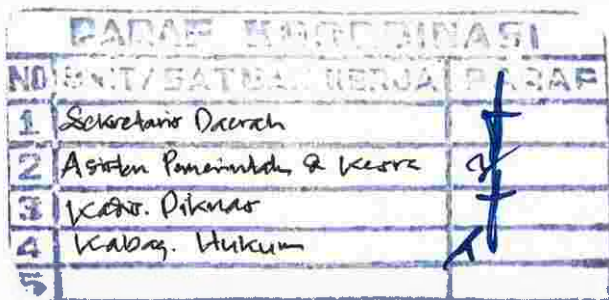 PARAF KOORDINASI
NO UNIT/SATUAN KERJA PARAF
1 Sekretaris Daerah
2 Asisten Pemerintah & Kesra
3 Kadis. Diknas
4 Kabag. Hukum
5